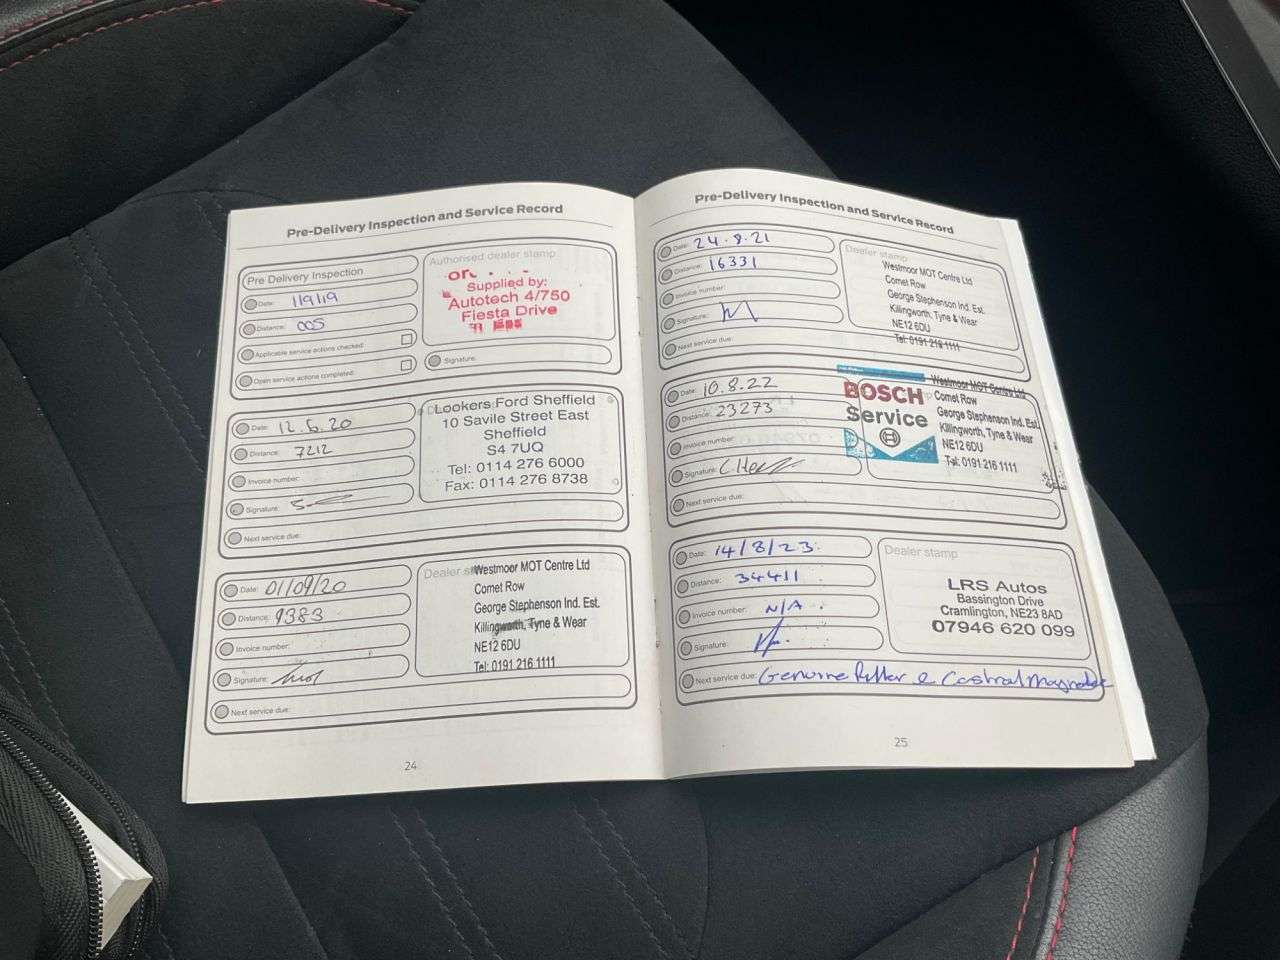 Pre-Delivery Inspection and Service Record
Pre Delivery Inspection
Date: 1/9/19
Distance: 005
Applicable service actions checked:
Open service actions completed:
Authorised dealer stamp
Supplied by:
Autotech 4/750
Fiesta Drive
Signature:
Date: 12.6.20
Distance: 7212
Invoice number:
Signature:
Next service due:
Lookers Ford Sheffield
10 Savile Street East
Sheffield
S4 7UQ
Tel: 0114 276 6000
Fax: 0114 276 8738
Date: 01/09/20
Distance: 9383
Invoice number:
Signature:
Next service due:
Dealer
Westmoor MOT Centre Ltd
Comet Row
George Stephenson Ind. Est.
Killingworth, Tyne & Wear
NE12 6DU
Tel: 0191 216 1111
24
Pre-Delivery Inspection and Service Record
Date: 24.8.21
Distance: 16331
Invoice number:
Signature:
Next service due:
Dealer stamp
Westmoor MOT Centre Ltd
Comet Row
George Stephenson Ind. Est.
Killingworth, Tyne & Wear
NE12 6DU
Tel: 0191 216 1111
Date: 10.8.22
Distance: 23273
Invoice number:
Signature:
Next service due:
BOSCH
Service
Westmoor MOT Centre Ltd
Comet Row
George Stephenson Ind. Est.
Killingworth, Tyne & Wear
NE12 6DU
Tel: 0191 216 1111
Date: 14/8/23.
Distance: 34411
Invoice number: N/A.
Signature:
Next service due: Genuine filter & Castrol Magnatec
Dealer stamp
LRS Autos
Bassington Drive
Cramlington, NE23 8AD
07946 620 099
25